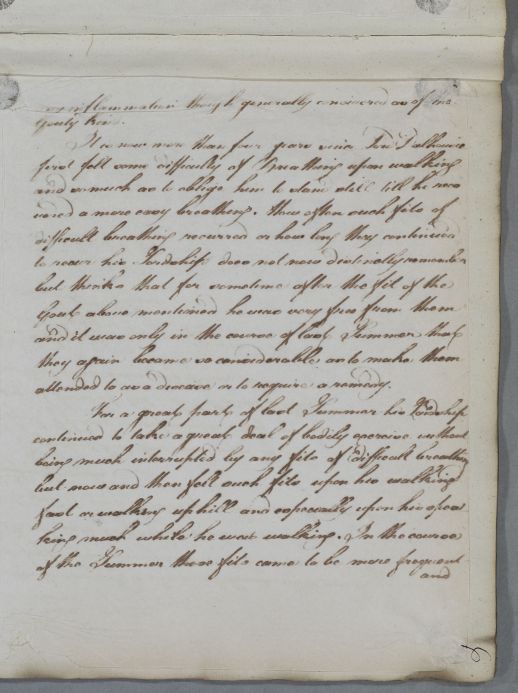 inflammation though generally considered as of the
Gouty kind.
It is now more than four years since Lord Dalhousie
first felt some difficulty of Breathing upon walking
and so much as to oblige him to stand still till he reco
vered a more easy breathing. How often such fits of
difficult breathing recurred or how long they continued
to recur his Lordship does not now distinctly remember
but thinks that for sometime after the fit of the
Gout above mentioned he were very free from them
and it was only in the course of last Summer that
they again became so considerable as to make them
attended to as a disease or to require a remedy.
For a great part of last Summer his Lordship
continued to take a great deal of bodily exercise without
being much interrupted by any fits of difficult breathing
but now and then felt such fits upon his walking
fast or walking up hill and especially upon his spea
king much while he was walking. In the course
of the Summer these fits came to be more frequent
and